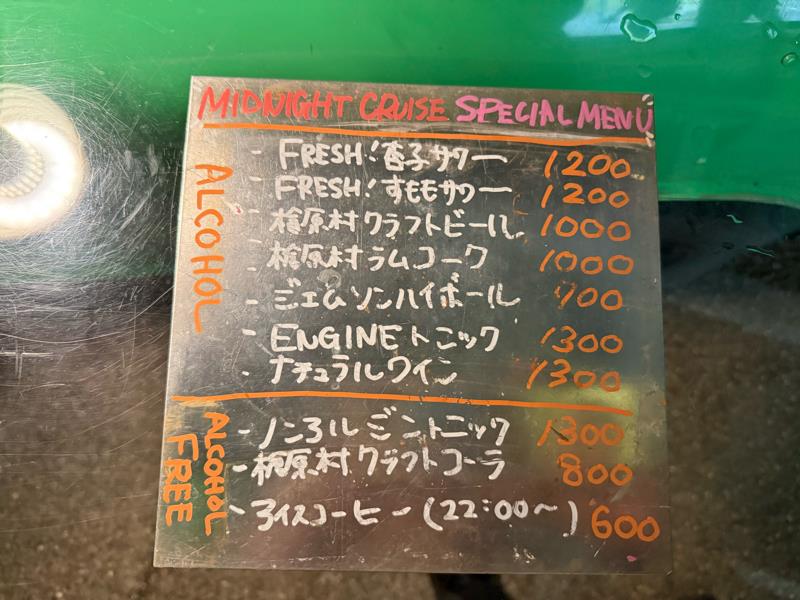 MIDNIGHT CRUISE SPECIAL MENU
ALCOHOL
- FRESH!杏子サワー 1200
- FRESH! すももサワー 1200
- 檜原村クラフトビール 1000
- 檜原村ラムコーク 1000
- ジェムソンハイボール 900
- ENGINE トニック 1300
- ナチュラルワイン 1300
ALCOHOL FREE
- ノンアルジントニック 1300
- 檜原村クラフトコーラ 800
- アイスコーヒー (22:00〜) 600